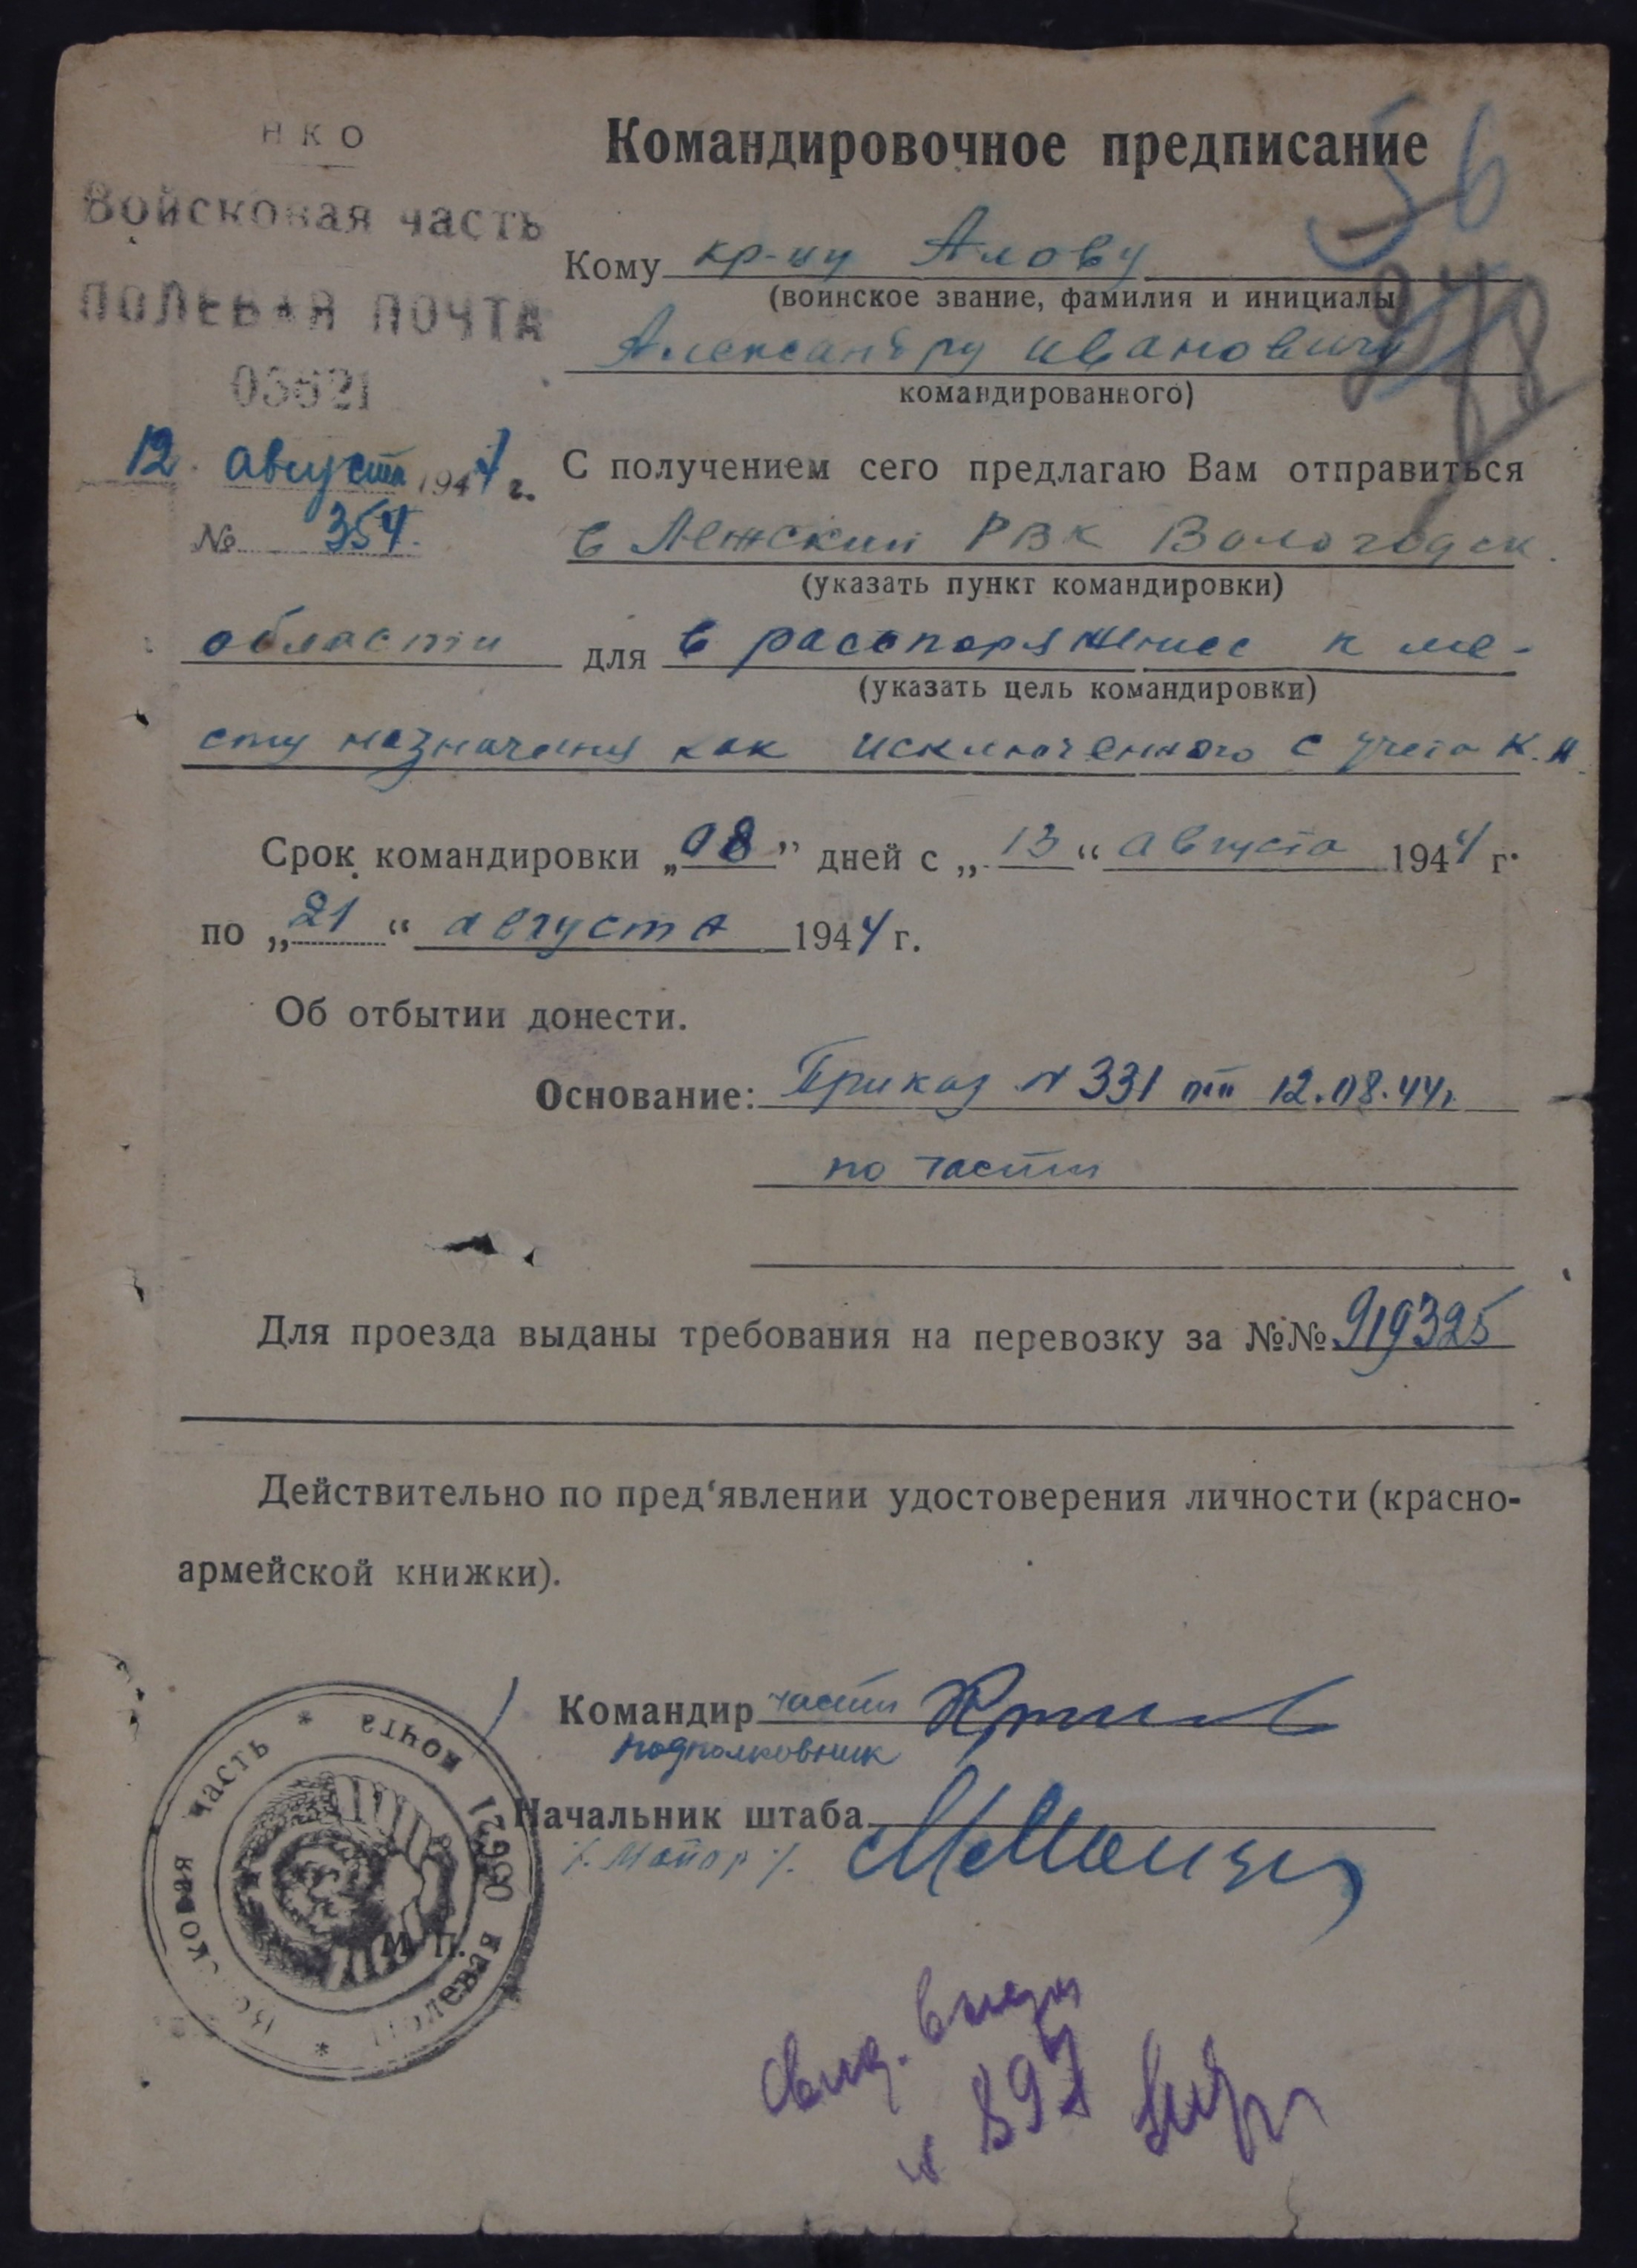 НКО
Войсковая часть
ПОЛЕВАЯ ПОЧТА
03621
12 августа 1944 г.
№ 354.
Командировочное предписание
56
278
Кому кр-цу Алову
(воинское звание, фамилия и инициалы
Александру Ивановичу
командированного)
С получением сего предлагаю Вам отправиться
в Лежский РВК Вологодск.
(указать пункт командировки)
области для в распоряжение к ме-
(указать цель командировки)
сту назначения как исключенного с учета К.А.
Срок командировки „08” дней с „13“ августа 1944 г.
по „21“ августа 1944 г.
Об отбытии донести.
Основание: Приказ N 331 от 12.08.44г.
по части
Для проезда выданы требования на перевозку за №№ 919325
Действительно по пред‘явлении удостоверения личности (красно-
армейской книжки).
Командир части
подполковник
Начальник штаба
/. Майор /.
М. П.
* Войсковая часть * Полевая почта 03621
897